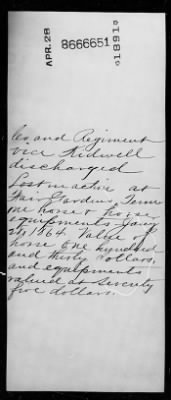 APR. 28
8666651
1891
Co and Regiment
vice Kidwell
discharged
Lost in action at
Fair Garden Tenn
one horse & horse
equipments Jany
27, 1864. Value of
horse One hundred
and thirty dollars,
and equipments
valued at Seventy
five dollars.